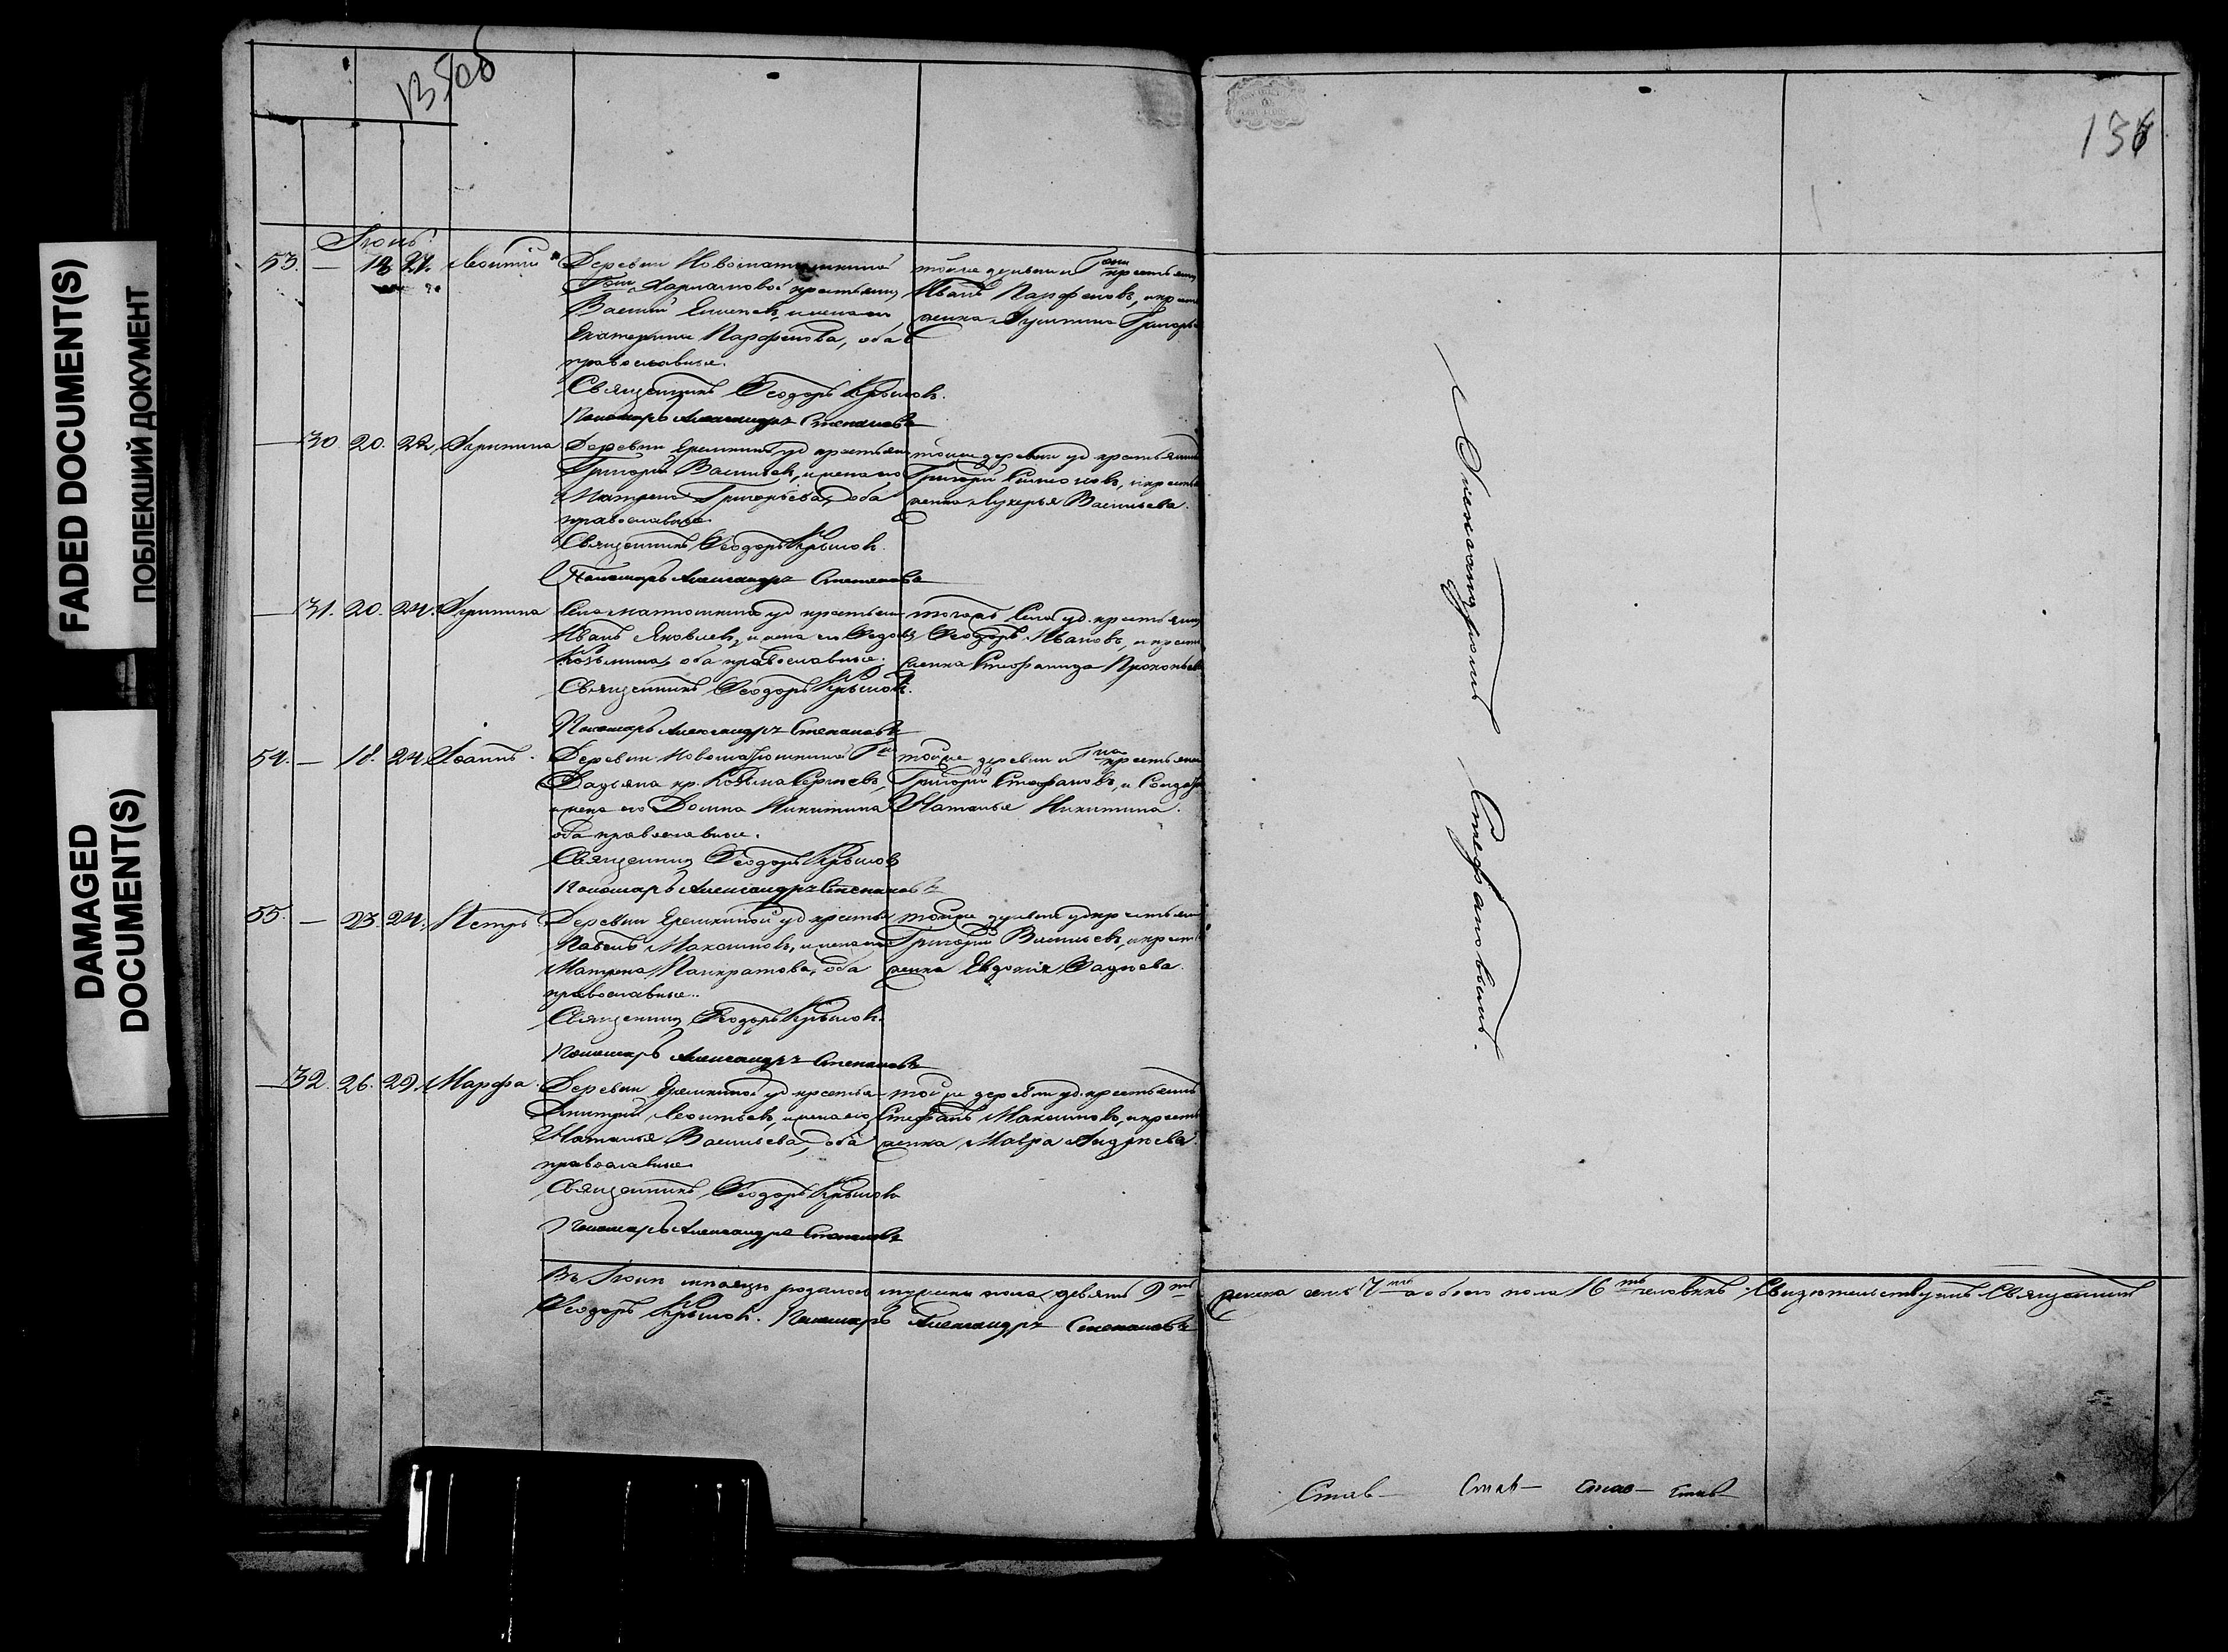 FADED DOCUMENT(S)
ПОБЛЕКШИЙ ДОКУМЕНТ
DAMAGED
DOCUMENT(S)
135об
136
Июнь
53. — 18 27. Леонтій
Деревни Новоматюшкиной
Харламовой крестьянинъ
Василій Епистевъ, и жена его
Екатерина Парфенова, оба
православные.
Священникъ Ѳеодоръ Крыловъ.
Пономарь Александръ Степановъ
тойже деревни Гжи крестьянинъ
Иванъ Парфеновъ, и крестьянка
Устинья Григорь
— 30. 20. 22. Агрипина
Деревни Еремкиной уд крестьян
Григорій Васильевъ, и жена его
Матрена Григорьева, оба
православные.
Священникъ Ѳеодоръ Крыловъ.
Пономарь Александръ Степановъ
тойже деревни уд крестьянинъ
Григорій Симеоновъ, и кресть
янка Лукерья Васильева.
— 31. 20. 24. Агрипина
Села Матюшкина уд крестьян
Иванъ Яковлевъ, и жена его Ѳедо
Козьмина, оба православные.
Священникъ Ѳеодоръ Крыловъ.
Пономарь Александръ Степановъ
тогожъ Села уд. крестьянинъ
Ѳеодоръ Ивановъ, и крест
янка Стефанида Прокопьева
54. — 18. 24. Іоаннъ.
Деревни Новоматюшкиной Г
Дадьяна кр. Козьма Сергѣевъ,
и жена его Домна Никитина
оба православные.
Священникъ Ѳеодоръ Крыловъ
Пономарь Александръ Степановъ
тойже деревни Гна крестьянинъ
Григорій Стефановъ, и Солда
Наталья Никитина.
55. — 23. 24. Петръ
Деревни Еремкиной уд крестья
Павелъ Максимовъ, и жена его
Матрена Панкратова, оба
православные.
Священникъ Ѳеодоръ Крыловъ.
Пономарь Александръ Степановъ
тойже деревни уд крестьян
Григорій Васильевъ, и крест
янка Евдокія Ѳадѣева.
— 32. 26. 29. Марфа.
Деревни Еремкиной уд крестья
Дмитрій Леонтьевъ, и жена его
Наталья Васильева, оба
православные.
Священникъ Ѳеодоръ Крыловъ
Пономарь Александръ Степановъ
тойже деревни уд. крестьянинъ
Стефанъ Максимовъ, и крест
янка Мавра Андреева.
Въ Іюнѣ мѣсяцѣ родилось мужеска пола девять 9ть женска семь 7мь а обоего пола 16ть человѣкъ. Свидѣтельствуетъ Священникъ
Ѳеодоръ Крыловъ. Пономарь Александръ Степановъ
Александромъ Стефановымъ.